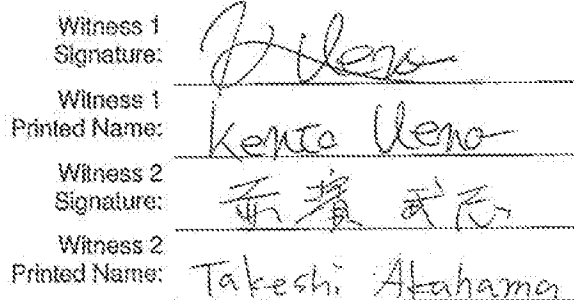 Witness 1
Signature: Ueno
Witness 1
Printed Name: Kenta Ueno
Witness 2
Signature: 武志
Witness 2
Printed Name: Takeshi Akahama